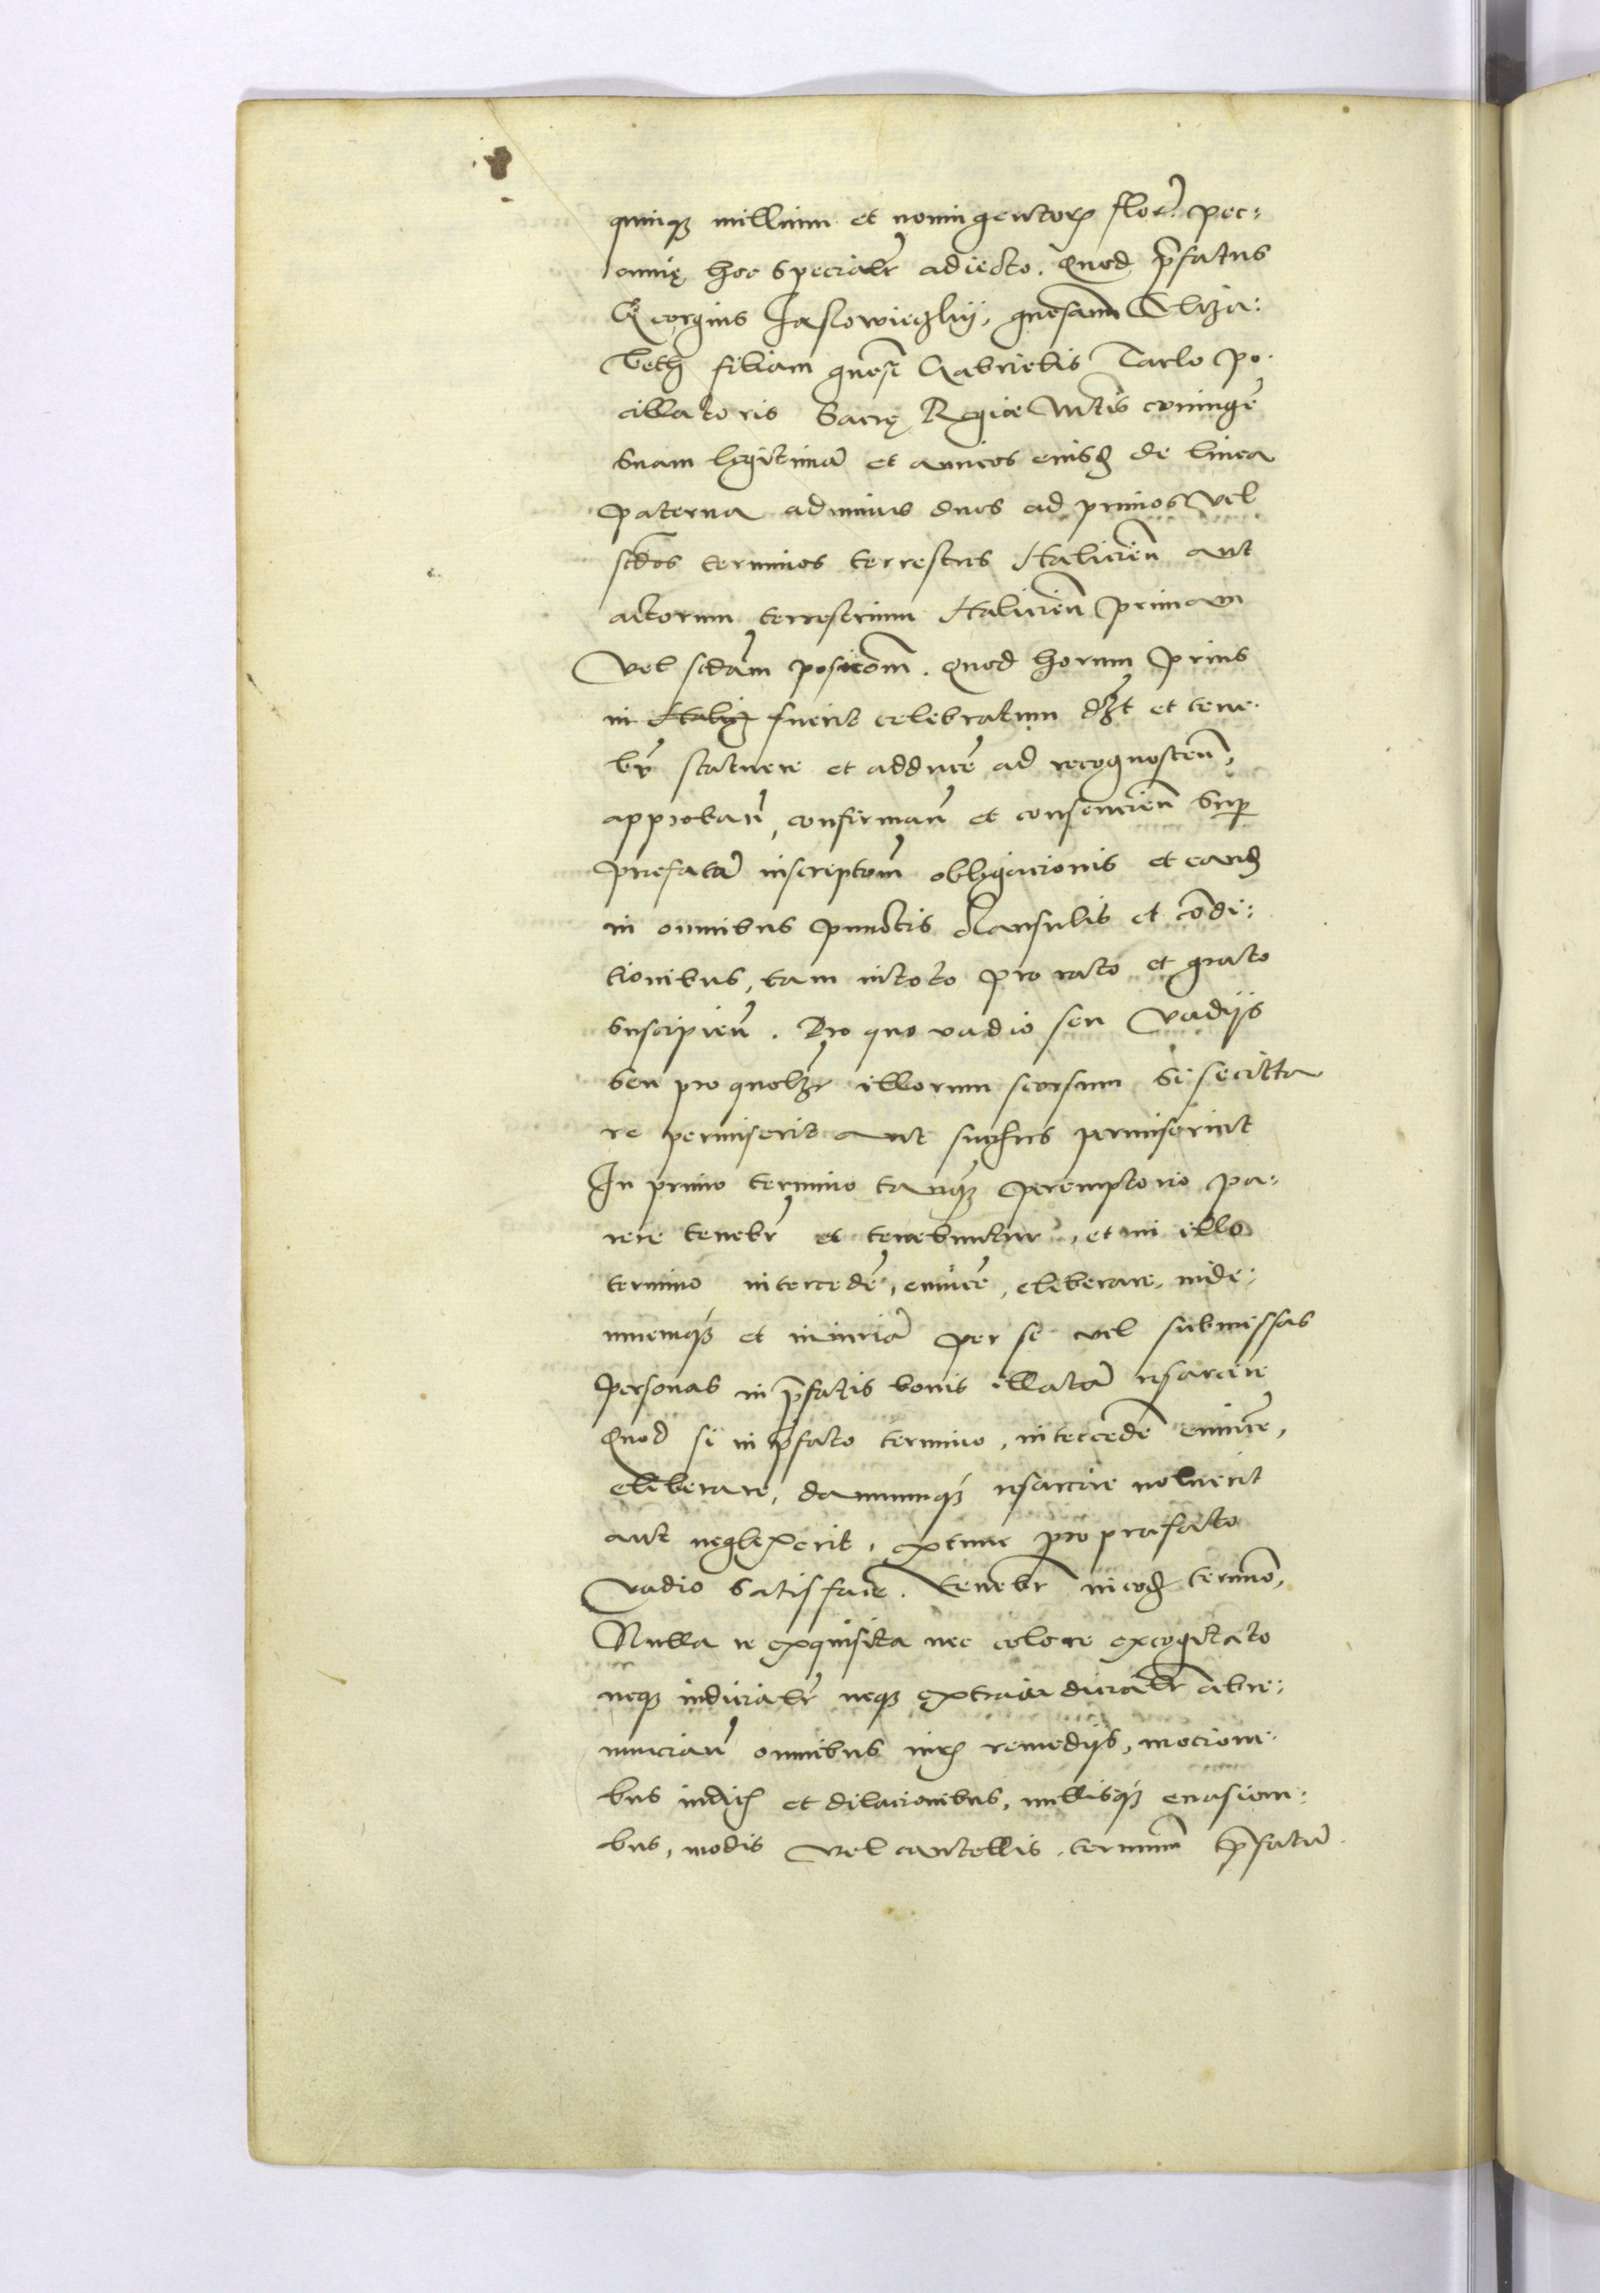 quinq3 millium et nonningentorꝝ flor̃. pec:
cunię hoc specialr̃ adiecto. Quod p̃fatus
Georgius Jaslowieczky, gnosam̃ Eliza:
beth filiam gnosi Gabrielis Tarlo po:
cillatoris Sacrę Regiae Mtis coniugẽ
suam legitimã et amicos eiusd̃ de linea
paterna adminus duos ad primos vel
scdos terminos terrestres Halicieñ aut
actorum terrestrium Halicieñ primam
vel scdam posicom̃. Quod horum prius
in Halicz fuerit celebratum d3t et tene:
br̃ statuere et adducẽ ad recognosceñ,
approbañ, confirmañ et consencieñ sup
prefatã inscriptom̃ obligacionis et eand̃
in omnibus punctis clausulis et condi:
tionibus, tam intoto pro rato et grato
suscipieñ. Pro quo vadio seu vadijs
seu pro quolz illorum seorsum si se citta
re permiserit aut sui permiserint
In primo termino tanq3 peremptorio pa:
rere tenebr̃ et tenebuntur, et in illo
termino intercedẽ, euincẽ, eliberare, inde:
mnemq3 et iniuriã per se vel submissas
personas in p̃fatis bonis illatã resarcire
Quod si in p̃fato termino, intercedẽ euincẽ,
eliberare, damnumq3 resarcire noluerit
aut neglexerit, extunc pro prafato
vadio satisfacẽ. tenebr̃ in eod̃ termino,
Nulla re exquisita nec colore excogitato
neq3 iudicialr̃ neq3 extraiudicialr̃ abre:
nunciañ omnibus iurꝭ remedijs, mocioni:
bus iudicꝭ et dilacionibus, nullisq3 euasioni:
bus, modis vel cautellis, terminum p̃fatũ